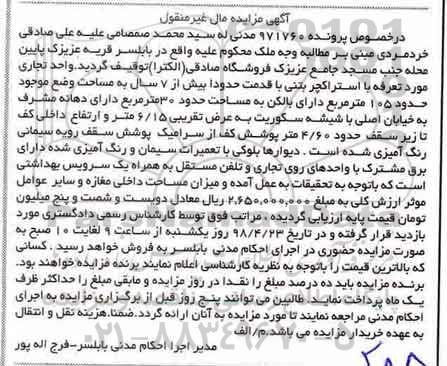 آگهی مزایده مال غیرمنقول
درخصوص پرونده ۹۷۱۷۶۰ مدنی له سید محمد صمصامی علیه علی صادقی
خردمردی مبنی بر مطالبه وجه ملک محکوم علیه واقع در بابلسر قریه عزیزک پایین
محله جنب مسجد جامع عزیزک فروشگاه صادقی(الکترا)توقیف گردید.واحد تجاری
مورد تعرفه با استراکچر بتنی با قدمت حدودا بیش از ۷ سال به مساحت وضع موجود
حدود ۱۰۵ مترمربع دارای بالکن به مساحت حدود ۳۰مترمربع دارای دهانه مشرف
به خیابان اصلی با شیشه سکوریت به عرض تقریبی ۶/۱۵ متر و ارتفاع داخلی کف
تا زیر سقف حدود ۴/۶۰ متر پوشش کف از سرامیک پوشش سقف رویه سیمانی
رنگ آمیزی شده است . دیوارها بلوکی با تعمیرات سیمان و رنگ آمیزی شده دارای
برق مشترک با واحدهای روی تجاری و تلفن مستقل به همراه یک سرویس بهداشتی
است که باتوجه به تحقیقات به عمل آمده و میزان مساحت داخلی مغازه و سایر عوامل
موثر ارزش کلی به مبلغ ۲,۶۵۰,۰۰۰,۰۰۰ ریال معادل دویست و شصت و پنج میلیون
تومان قیمت پایه ارزیابی گردیده ، مراتب فوق توسط کارشناس رسمی دادگستری مورد
بازدید قرار گرفته و در تاریخ ۹۸/۴/۲۳ روز یکشنبه از ساعت ۹ لغایت ۱۰ صبح به
صورت مزایده حضوری در اجرای احکام مدنی بابلسر به فروش خواهد رسید . کسانی
که بالاترین قیمت را باتوجه به نظریه کارشناسی اعلام نمایند برنده مزایده خواهند بود.
برنده مزایده باید ده درصد مبلغ را نقدا در روز مزایده و مابقی مبلغ را حداکثر ظرف
یک ماه پرداخت نمایند. طالبین می توانند پنج روز قبل از برگزاری مزایده به اجرای
احکام مدنی مراجعه نمایند تا مورد مزایده به آنان ارائه گردد.ضمنا.هزینه نقل و انتقال
به عهده خریدار مزایده می باشد.م/الف
مدیر اجرا احکام مدنی بابلسر-فرج اله پور
۰۲۱-۸۸۳۴۹۶۷۰-۵